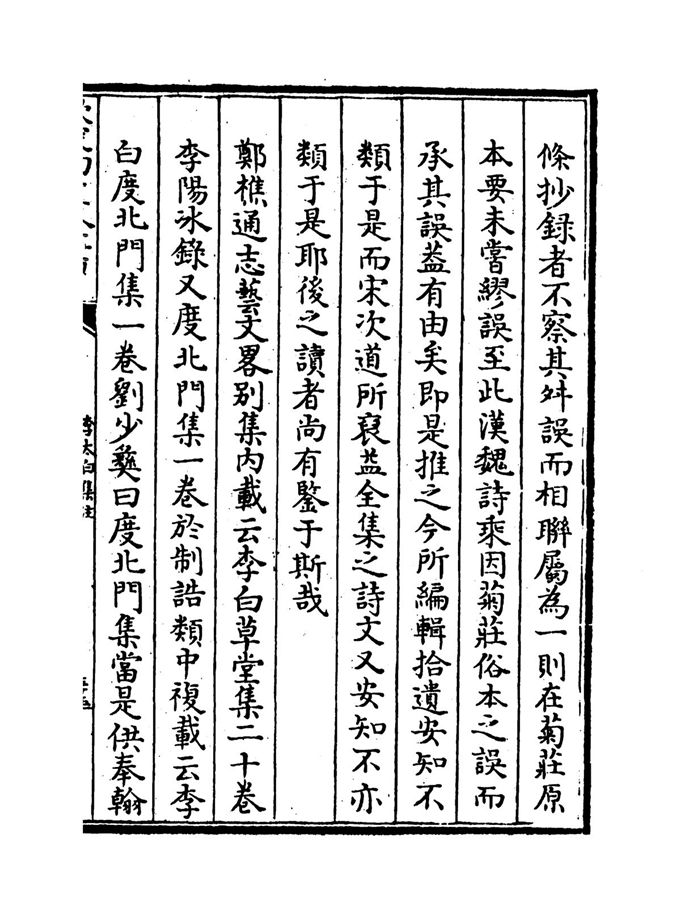 條抄録者不察其舛誤而相聯屬為一則在菊莊原
本要未嘗繆誤至此漢魏詩乘因菊莊俗本之誤而
承其誤葢有由矣即是推之今所編輯拾遺安知不
類于是而宋次道所裒益全集之詩文又安知不亦
類于是耶後之讀者尚有鑒于斯哉
鄭樵通志藝文畧别集内載云李白草堂集二十卷
李陽冰錄又度北門集一卷於制誥類中複載云李
白度北門集一卷劉少彝曰度北門集當是供奉翰
李太白集注